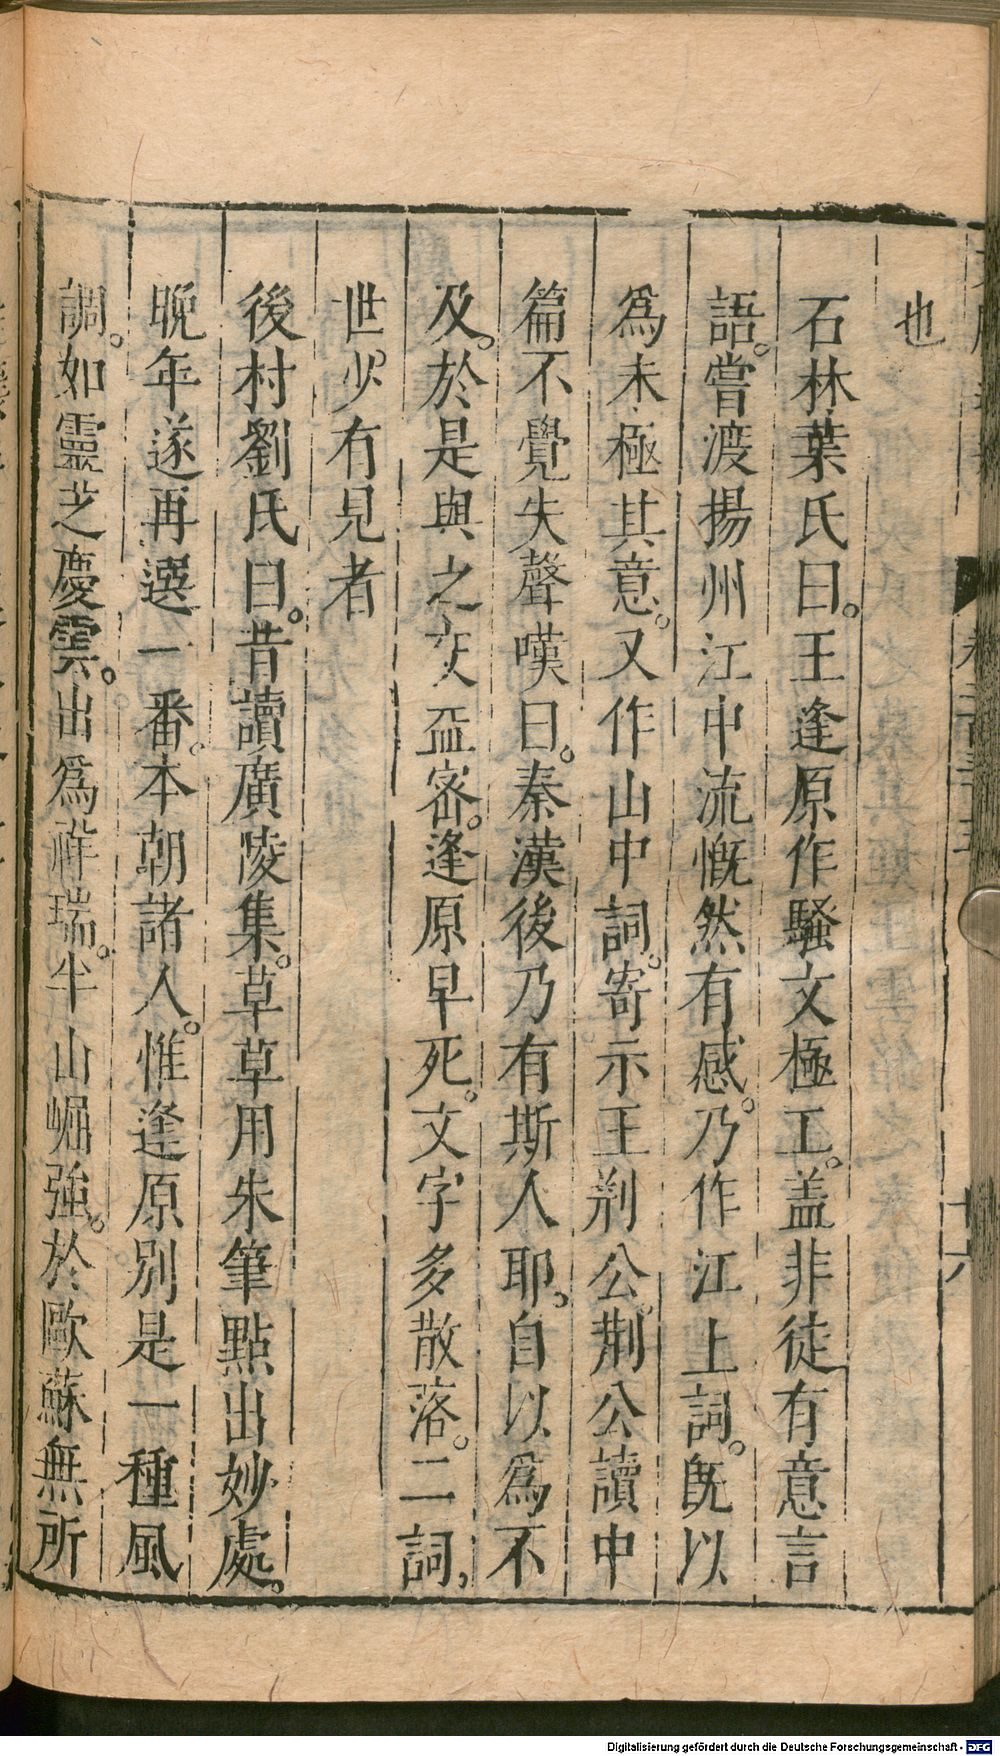 也
石林葉氏曰。王逢原作騷文極工。盖非徒有意言
語。嘗渡揚州江中流慨然有感。乃作江上詞。旣以
爲未極其意。又作山中詞。寄示王荆公。荆公讀中
篇不覺失聲嘆曰。秦漢後乃有斯人耶。自以爲不
及。於是與之交益密。逢原早死。文字多散落。二詞，
世少有見者
後村劉氏曰。昔讀廣陵集。草草用朱筆點出妙處。
晚年遂再選一番。本朝諸人。惟逢原別是一種風
調。如靈芝慶雲。出爲祥瑞。半山崛強。於歐蘇無所
十六
Digitalisierung gefördert durch die Deutsche Forschungsgemeinschaft - DFG